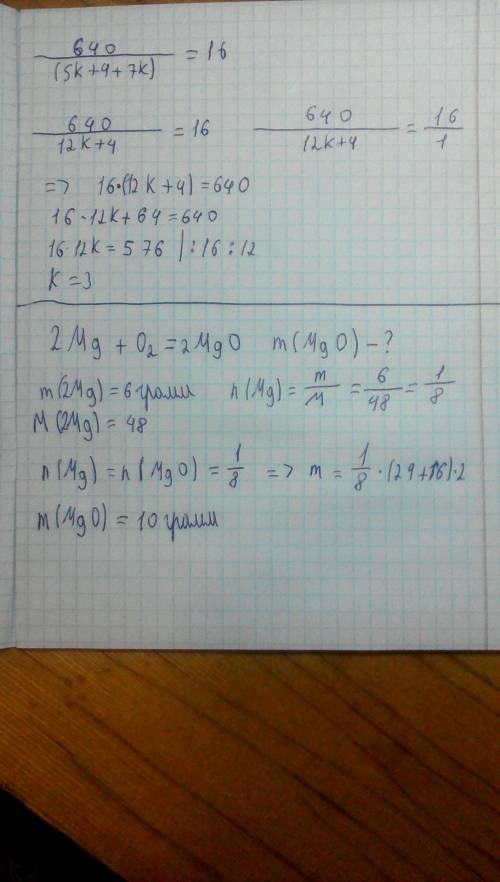 640/(5k+4+7k) = 16
640/12k+4 = 16   640/12k+4 = 16/1
=> 16•(12k+4)=640
16·12k+64=640
16·12k=576 |:16:12
k=3
2Mg + O₂ = 2MgO   m(MgO) – ?
m(2Mg)=6 грамм   n(Mg) = m/M = 6/48 = 1/8
M(2Mg)=48
n(Mg) = n(MgO) = 1/8 => m = 1/8 · (24+16)·2
m(MgO) = 10 грамм